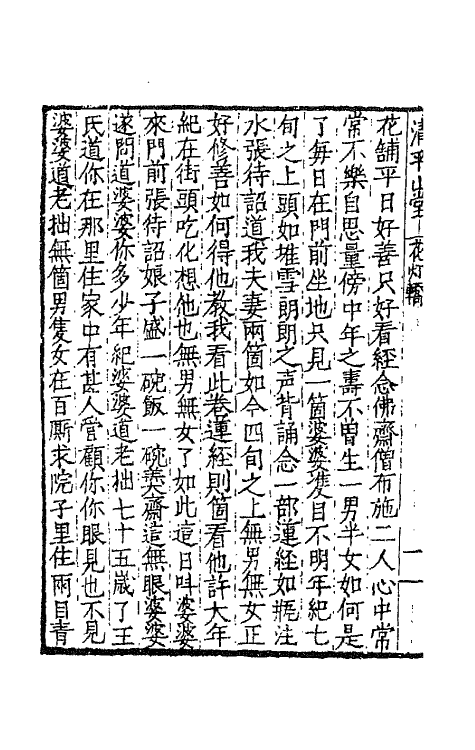 清平山堂 花灯轎
花舖平日好善只好看経念佛齋僧布施二人心中常
常不樂自思量傍中年之壽不曽生一男半女如何是
了每日在門前坐地只見一箇婆婆隻目不明年紀七
旬之上頭如堆雪朗朗之声背誦念一部蓮経如甁注
水張待詔道我夫妻兩箇如今四旬之上無男無女正
好修善如何得他教我看此卷蓮経則箇看他許大年
紀在街頭吃化想他也無男無女了如此這日叫婆婆
來門前張待詔娘子盛一碗飯一碗羹齋這無眼婆婆
遂問道婆婆你多少年紀婆婆道老拙七十五歳了王
氏道你在那里住家中有甚人管顧你你眼見也不見
婆婆道老拙無箇男隻女在百厮求院子里住兩目青